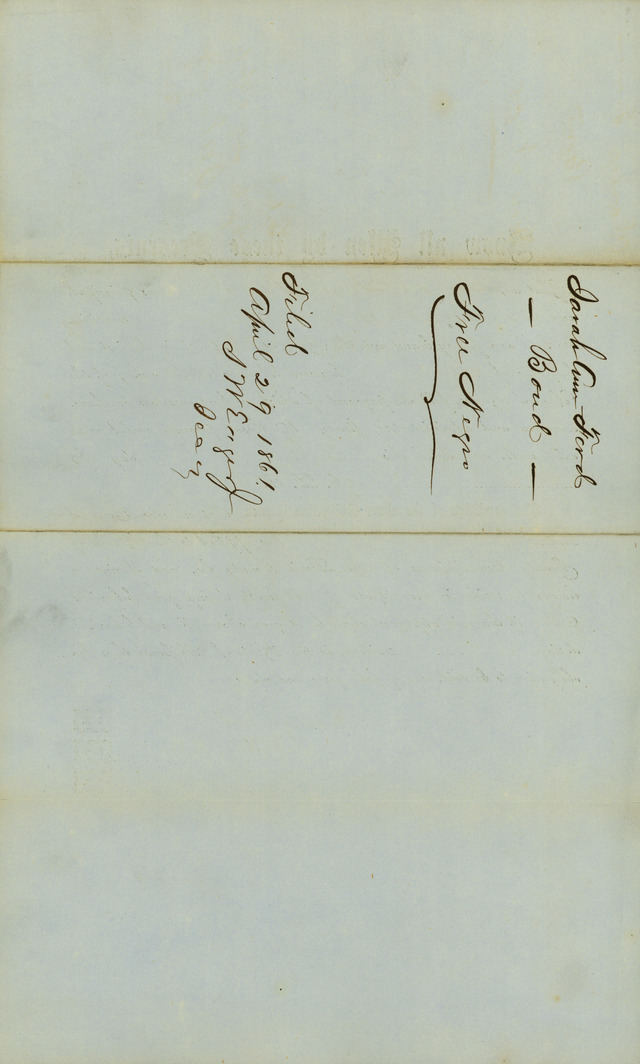 Sarah Ann Ford
— Bond —
Free Negro
Filed
April 29 1861